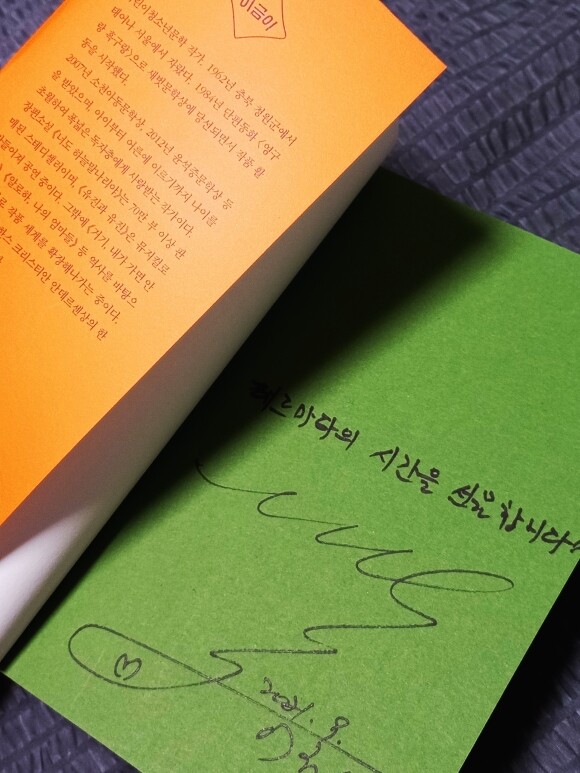 이금이
어린이청소년문학 작가. 1962년 충북 청원군에서
태어나 서울에서 자랐다. 1984년 단편동화 〈영구
랑 흑구랑〉으로 새벗문학상에 당선되면서 작품 활
동을 시작했다.
2007년 소천아동문학상, 2012년 윤석중문학상 등
을 받았으며, 아이부터 어른에 이르기까지 나이를
초월하여 폭넓은 독자층에게 사랑받는 작가이다.
장편소설 《너도 하늘말나리야》는 70만 부 이상 판
매된 스테디셀러이며, 《유진과 유진》은 뮤지컬로
만들어져 공연 중이다. 그밖에 《거기, 내가 가면 안
《알로하, 나의 엄마들》 등 역사를 바탕으
로 작품 세계를 확장해나가는 중이다.
한스 크리스티안 안데르센상의 한
테르마다의 시간을 선물합니다
2021. 9.